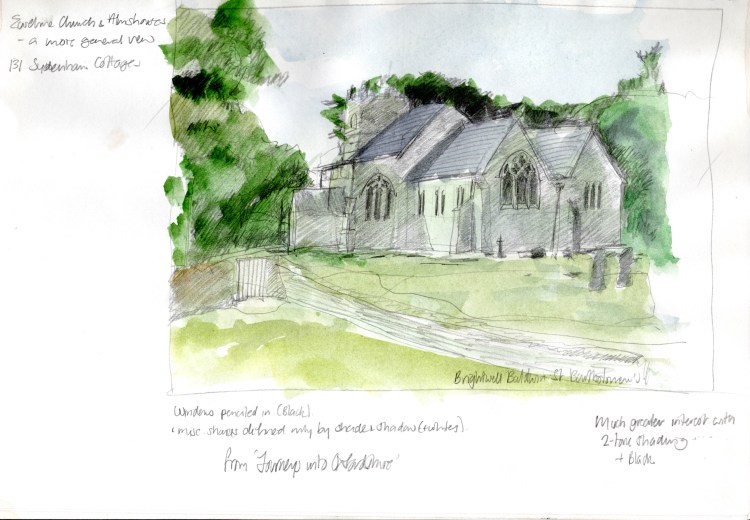 Ewelme Church & Almshouses
- a more general view
131 Sydenham Cottages
Brightwell Baldwin St Bartholomew's
Windows pencilled in (Black).
shapes defined only by shade & shadow (+ whites).
from 'Journeys into Oxfordshire'
Much greater interest with
2-tone shading ....
+ Black